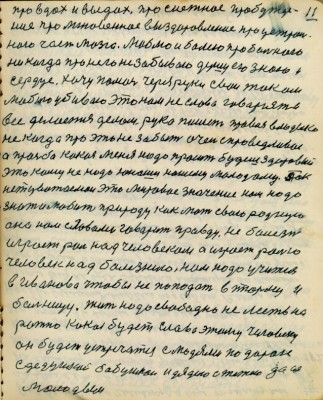 про вдох и выдах, про снежное пробужде- 11
ние про мгновенное выздоровление про централ.
ного част мозга. Люблю и болею про больного
никогда про него не забываю душу его знаю и
сердце. Хочу помоч через руки свои током
убиваю это нам не слова говарят а
все делается делом, рука пишет правая владыка
не когда про это не забыт очен справедливае
а прозба какая меня надо просит будеш здоровый
это каму не надо юноши нашему молодому. Так
не это мировое значение нам надо
знат и любит природу как мат свою родную
она нам словами говарит правду, не болезн
играет рол над человеком а играет рол
человек над болезнею, нам надо учится
в Иванова чтобы не попадат в тюрму и
болницу. Жит надо свободно не лест на
рожно какая будет слава этому человеку
он будет встречатся с людями по дороге
с дедушкой бабушкой и дядею с тётею да и
молодым